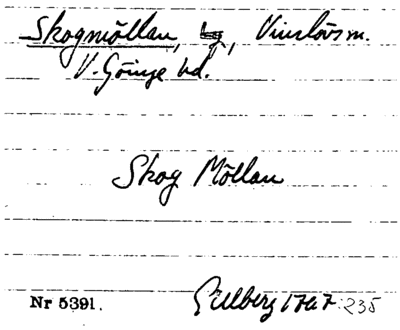 Skogmöllan, lg, Vinslövs m.
V. Göinge hd.
Skog Möllan
Gillberg 1767:235
Nr 5391.